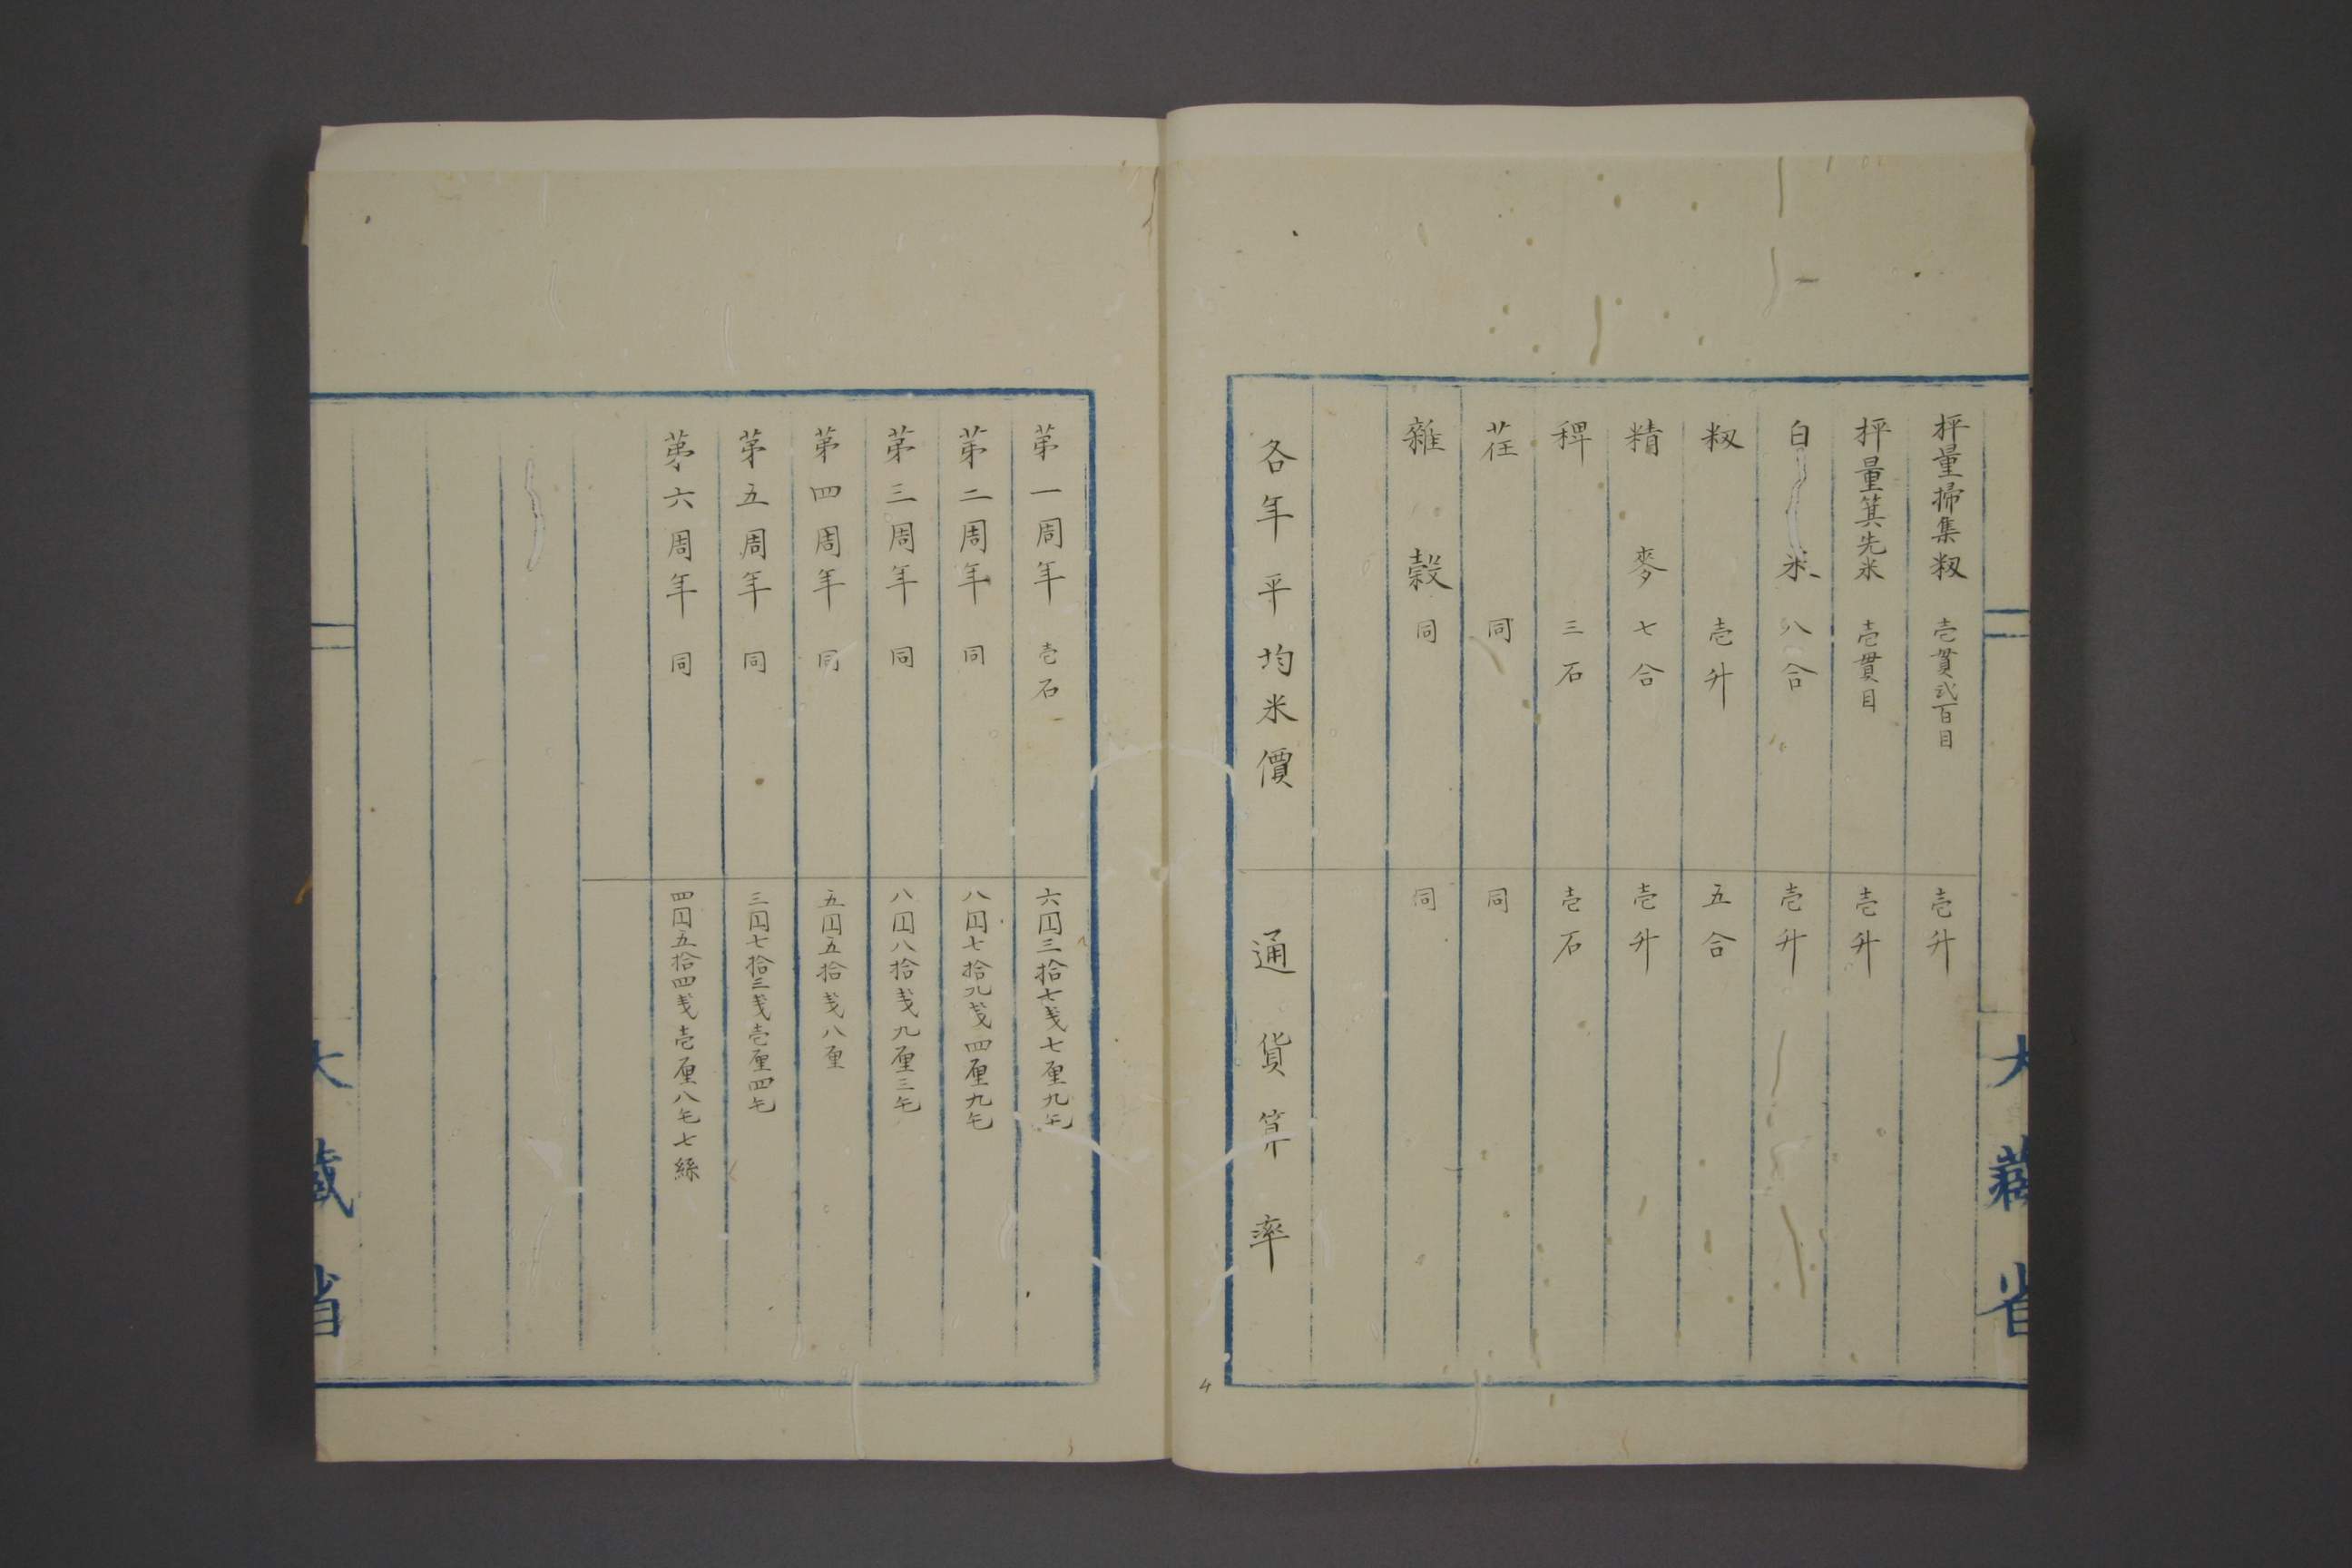 秤量掃集籾 壱貫弐百目 壱升
秤量箕先米 壱貫目 壱升
白米 八合 壱升
籾 壱升 五合
精麥 七合 壱升
稗 三石 壱石
荏 同 同
雜穀 同 同
各年平均米價 通貨算率
大藏省
第一周年 壱石 六円三拾七銭七厘九毛
第二周年 同 八円七拾九銭四厘九毛
第三周年 同 八円八拾銭九厘三毛
第四周年 同 五円五拾銭八厘
第五周年 同 三円七拾三銭壱厘四毛
第六周年 同 四円五拾四銭壱厘八毛七絲
大藏省